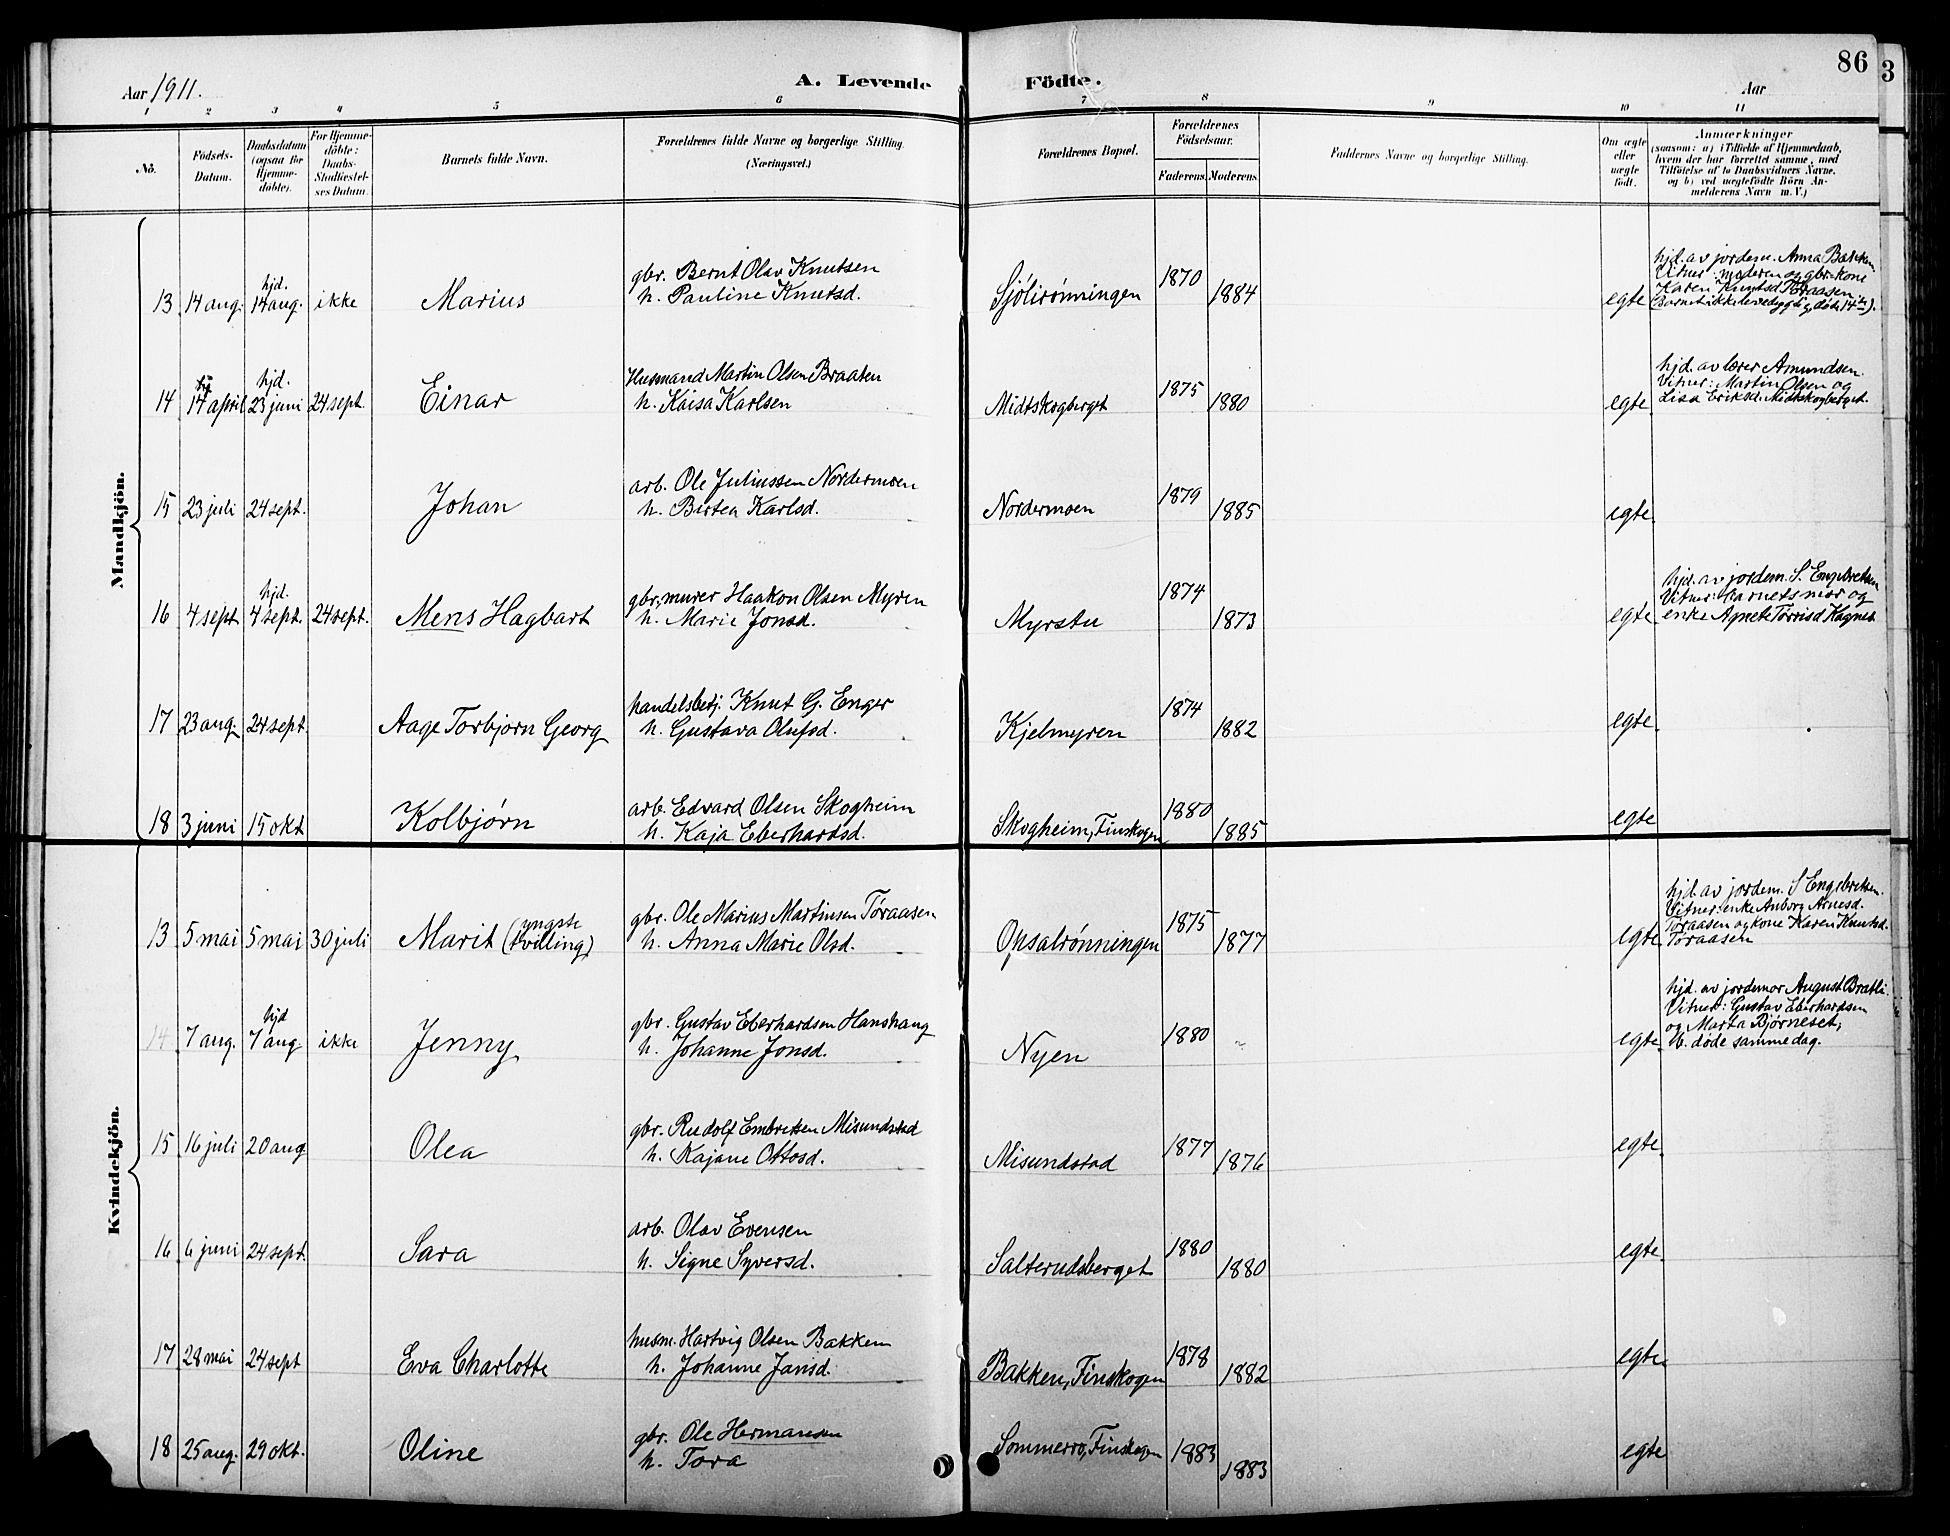 86
3
Aar 1911.
A. Levende Födte.
Aar
1 2 3 4 5 6 7 8 9 10 11
No.
Födsels-Datum.
Daabsdatum (ogsaa for Hjemme-döbte).
For Hjemme-döbte: Daabs-Stadfæstel-ses Datum.
Barnets fulde Navn.
Forældrenes fulde Navne og borgerlige Stilling. (Næringsvei.)
Forældrenes Bopæl.
Forældrenes Födselsaar.
Faderens. Moderens.
Faddernes Navne og borgerlige Stilling.
Om ægte eller uægte født.
Anmærkninger
(saasom: a) i Tilfælde af Hjemmedaab,
hvem der har forrettet samme, med
Tilföielse af to Daabsvidners Navne,
og b) ved uægtefödte Börn An-
melderens Navn m. V.)
Mandkjön.
13 14 aug. hjd. 14 aug. ikke Marius gbr. Bernt Olav Knutsen
h. Pauline Knutsd. Sjölirönningen 1870 1884 egte
hjd. av jordem. Anna Bakken
Vitner: moderen og gbr.kone
Karen Knutsd Töraasen
(Barnet ikke levedygtig, døde 14de).
14 14 april hjd. 23 juni 24 sept. Einar Husmand Martin Olsen Braaten
h. Kaisa Karlsen Midtskogberget 1875 1880 egte
hjd. av lærer Amundsen.
Vitner: Martin Olsen og
Lisa Eriksd. Midtskogberget.
15 23 juli 24 sept. Johan arb. Ole Juliussen Nordermoen
h. Birtea Karlsd. Nordermoen 1879 1885 egte
16 4 sept hjd. 4 sept. 24 sept. Mens Hagbart gbr., murer Haakon Olsen Myren
h. Marie Jonsd. Myrstu 1874 1873 egte
hjd. av jordem. S. Engebretsen
Vitner: barnets mor og
enke Agnete Törrisd Kagnes
17 23 aug. 24 sept. Aage Torbjørn Georg handelsbetj. Knut G. Enger
h. Gustava Olufsd. Kjelmyren 1874 1882 egte
18 3 juni 15 okt Kolbjørn arb. Edvard Olsen Skogheim
h. Kaja Eberhardsd. Skogheim, Finskogen 1880 1885 egte
Kvindekjön.
13 5 mai 5 mai 30 juli Marit (yngste tvilling) gbr. Ole Marius Martinsen Töraasen
h. Anna Marie Olsd. Opsalrönningen 1875 1877 egte
hjd. av jordem. S Engebretsen.
Vitner: enke Anborg Arnesd.
Töraasen og kone Karen Knutsd.
Töraasen
14 7 aug. hjd 7 aug. ikke Jenny gbr. Gustav Eberhardsen Hanshaug
h. Johanne Jonsd. Nyen 1880 egte
hjd. av jordemor August Bratli.
Vitner: Gustav Eberhardsen
og Marta Bjørneset;
B. døde samme dag.
15 16 juli 20 aug Olea gbr. Rudolf Embretsen Misundstad
h. Kajane Ottosd. Misundstad 1877 1876 egte
16 6 juni 24 sept. Sara arb. Olav Evensen
h. Signe Syversd. Salterudsberget 1880 1880 egte
17 28 mai 24 sept Eva Charlotte husm. Hartvig Olsen Bakken
h. Johanne Jansd. Bakken, Finskogen 1878 1882 egte
18 25 aug. 29 okt. Oline gbr. Ole Hermansen
h. Tora Sommerro, Finskogen 1883 1883 egte